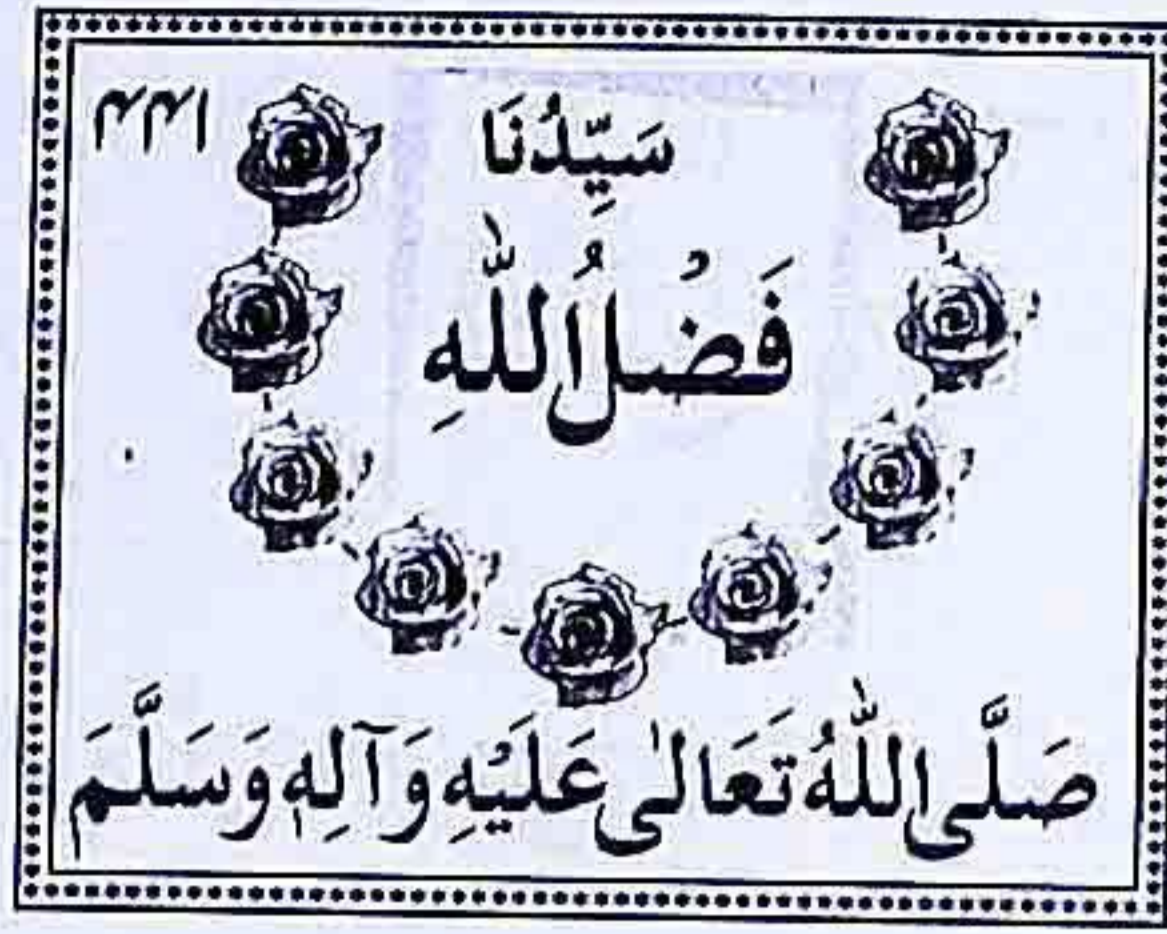 ۴۴۱
سَیِّدُنَا
فَضْلُ اللّٰهِ
صَلَّی اللّٰهُ تَعَالٰی عَلَیْهِ وَآلِهٖ وَسَلَّمَ